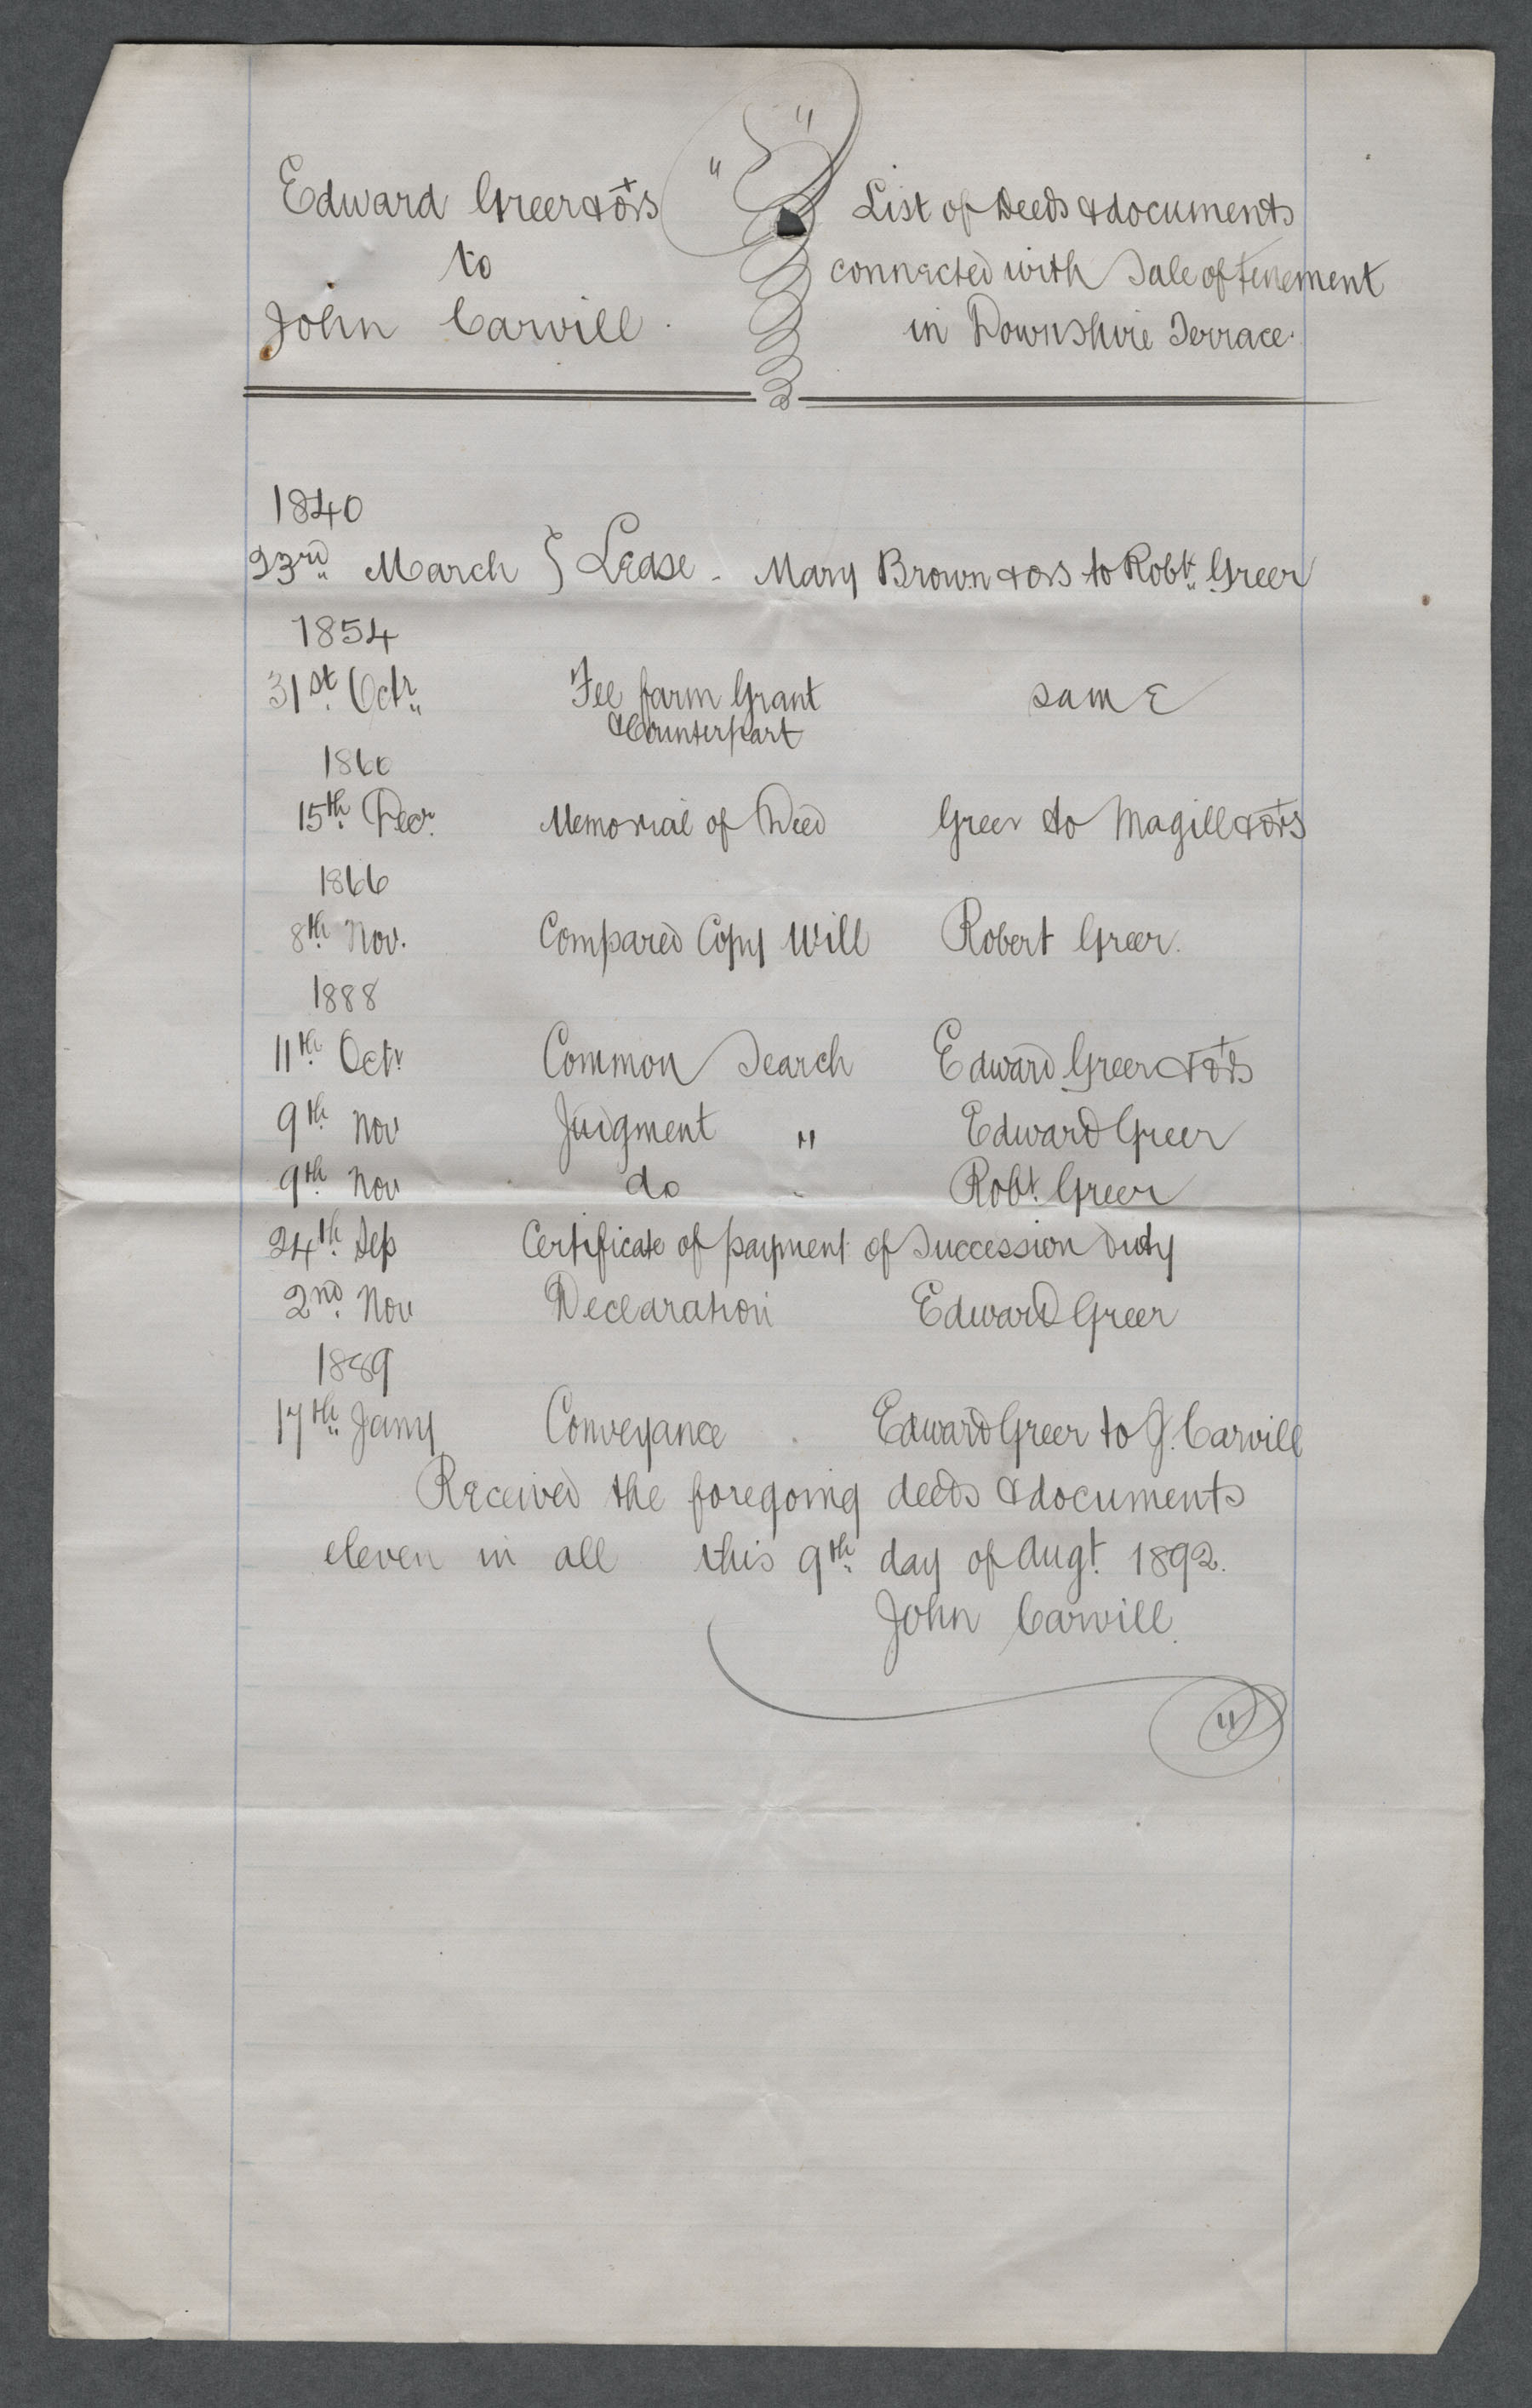 Edward Greer & ors
to
John Carvill.
List of Deeds & documents
connected with Sale of tenement
in Downshire Terrace.
1840
23rd March } Lease - Mary Brown & ors to Robt. Greer
1854
31st Octr. Fee farm Grant same
& Counterpart
1860
15th Decr. Memorial of Deed Greer to Magill & ors
1866
8th Nov. Compared Copy Will Robert Greer.
1888
11th Octr Common Search Edward Greer & ors
9th Nov Judgment " Edward Greer
9th Nov do Robt. Greer
24th Sep Certificate of payment of Succession Duty
2nd Nov Declaration Edward Greer
1889
17th Jany Conveyance Edward Greer to J. Carvill
Received the foregoing deeds & documents
eleven in all this 9th day of Augt. 1892.
John Carvill.